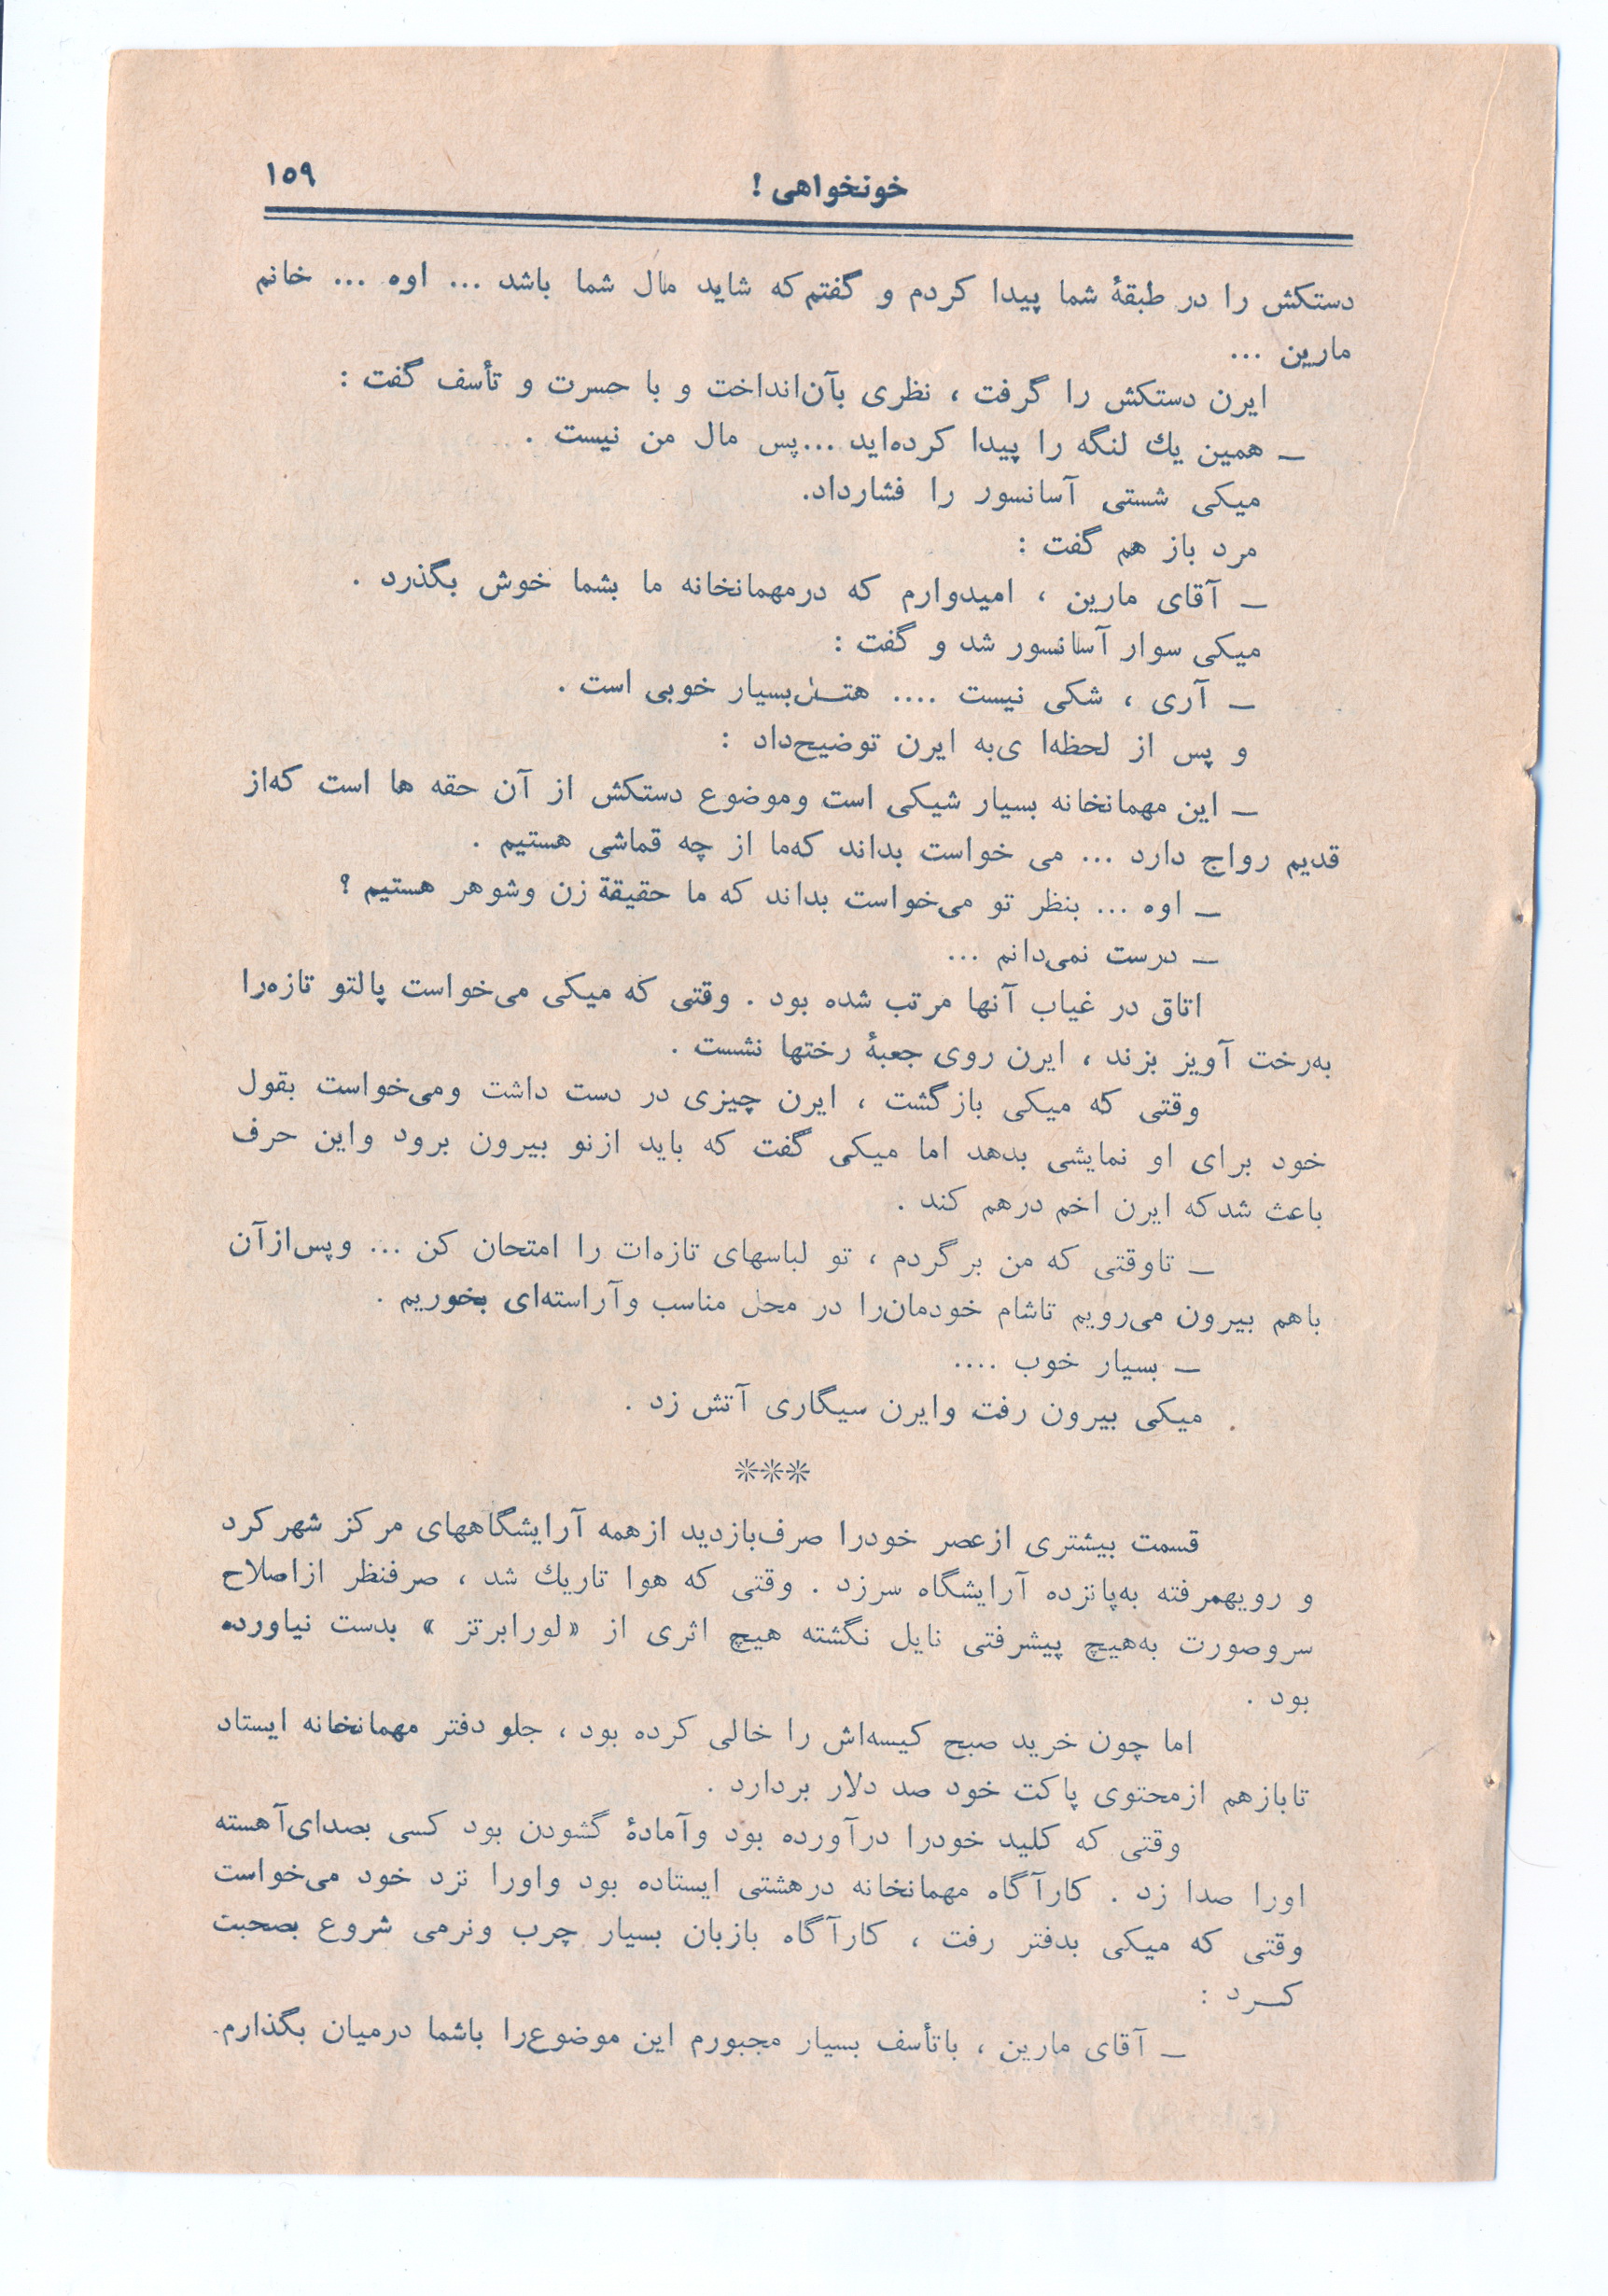 خونخواهی !
۱۵۹
دستکش را در طبقهٔ شما پیدا کردم و گفتم که شاید مال شما باشد ... اوه ... خانم
مارین ...
ایرن دستکش را گرفت ، نظری بآن‌انداخت و با حسرت و تأسف گفت :
ـ همین یك لنگه را پیدا کرده‌اید ...پس مال من نیست .
میکی شستی آسانسور را فشارداد.
مرد باز هم گفت :
ـ آقای مارین ، امیدوارم که درمهمانخانه ما بشما خوش بگذرد .
میکی سوار آسانسور شد و گفت :
ـ آری ، شکی نیست .... هتـل‌بسیار خوبی است .
و پس از لحظه‌ا ی‌به ایرن توضیح‌داد :
ـ این مهمانخانه بسیار شیکی است وموضوع دستکش از آن حقه ها است که‌از
قدیم رواج دارد ... می خواست بداند که‌ما از چه قماشی هستیم .
ـ اوه ... بنظر تو می‌خواست بداند که ما حقیقة زن وشوهر هستیم ؟
ـ درست نمی‌دانم ...
اتاق در غیاب آنها مرتب شده بود . وقتی که میکی می‌خواست پالتو تازه‌را
به‌رخت آویز بزند ، ایرن روی جعبهٔ رختها نشست .
وقتی که میکی بازگشت ، ایرن چیزی در دست داشت ومی‌خواست بقول
خود برای او نمایشی بدهد اما میکی گفت که باید ازنو بیرون برود واین حرف
باعث شدکه ایرن اخم درهم کند .
ـ تاوقتی که من برگردم ، تو لباسهای تازه‌ات را امتحان کن ... وپس‌ازآن
باهم بیرون می‌رویم تاشام خودمان‌را در محل مناسب وآراسته‌ای بخوریم .
ـ بسیار خوب ....
میکی بیرون رفت وایرن سیگاری آتش زد .
***
قسمت بیشتری ازعصر خودرا صرف‌بازدید ازهمه آرایشگاههای مرکز شهرکرد
و رویهمرفته به‌پانزده آرایشگاه سرزد . وقتی که هوا تاریك شد ، صرفنظر ازاصلاح
سروصورت به‌هیچ پیشرفتی نایل نگشته هیچ اثری از «لورابرتز » بدست نیاورده
بود .
اما چون خرید صبح کیسه‌اش را خالی کرده بود ، جلو دفتر مهمانخانه ایستاد
تابازهم ازمحتوی پاکت خود صد دلار بردارد .
وقتی که کلید خودرا درآورده بود وآمادهٔ گشودن بود کسی بصدای‌آهسته
اورا صدا زد . کارآگاه مهمانخانه درهشتی ایستاده بود واورا نزد خود می‌خواست
وقتی که میکی بدفتر رفت ، کارآگاه بازبان بسیار چرب ونرمی شروع بصحبت
کـرد :
ـ آقای مارین ، باتأسف بسیار مجبورم این موضوع‌را باشما درمیان بگذارم.